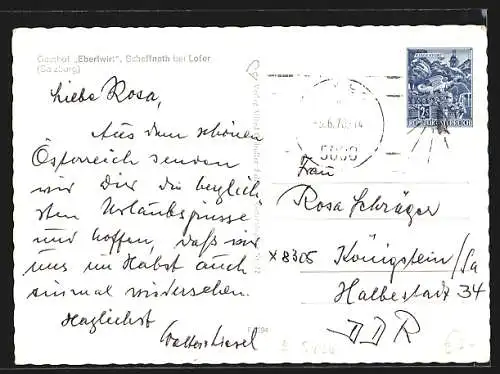 Gasthof „Eberlwirt", Scheffnoth bei Lofer
(Salzburg)
Liebe Rosa,
Aus dem schönen
Österreich senden
wir Dir die herzlich
sten Urlaubsgrüsse
und hoffen, daß wir
uns im Herbst auch
einmal wiedersehen.
Herzlichst
5000
2 S
Frau
Rosa Schräger
x 8305 Königstein/Sa
Halbestadt 34
DDR